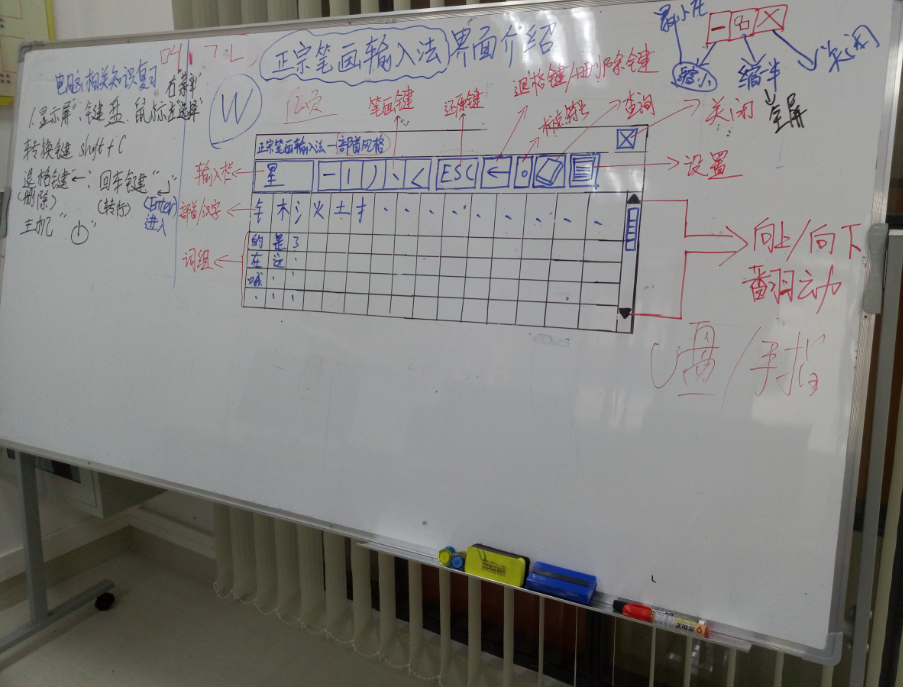 正宗笔画输入法界面介绍
最小化
缩小
缩半
关闭
全屏
电脑相关知识复习
右菜单
1、显示屏、键盘、鼠标左选择
转换键 shift+C
退格键"←"、回车键"↵"
(删除) (转行) (Enter)
进入
主机"⏻"
W
笔画键
还原键
退格键/删除键
标点符号
查询
关闭
设置
正宗笔画输入法—部首风格
输入栏
星 一 丨 丿 丶 ㄑ ESC ← 。
部首/汉字
钅 木 氵 火 土 扌
词组
的 是 了
在 这
城
向上/向下
翻动
/手指